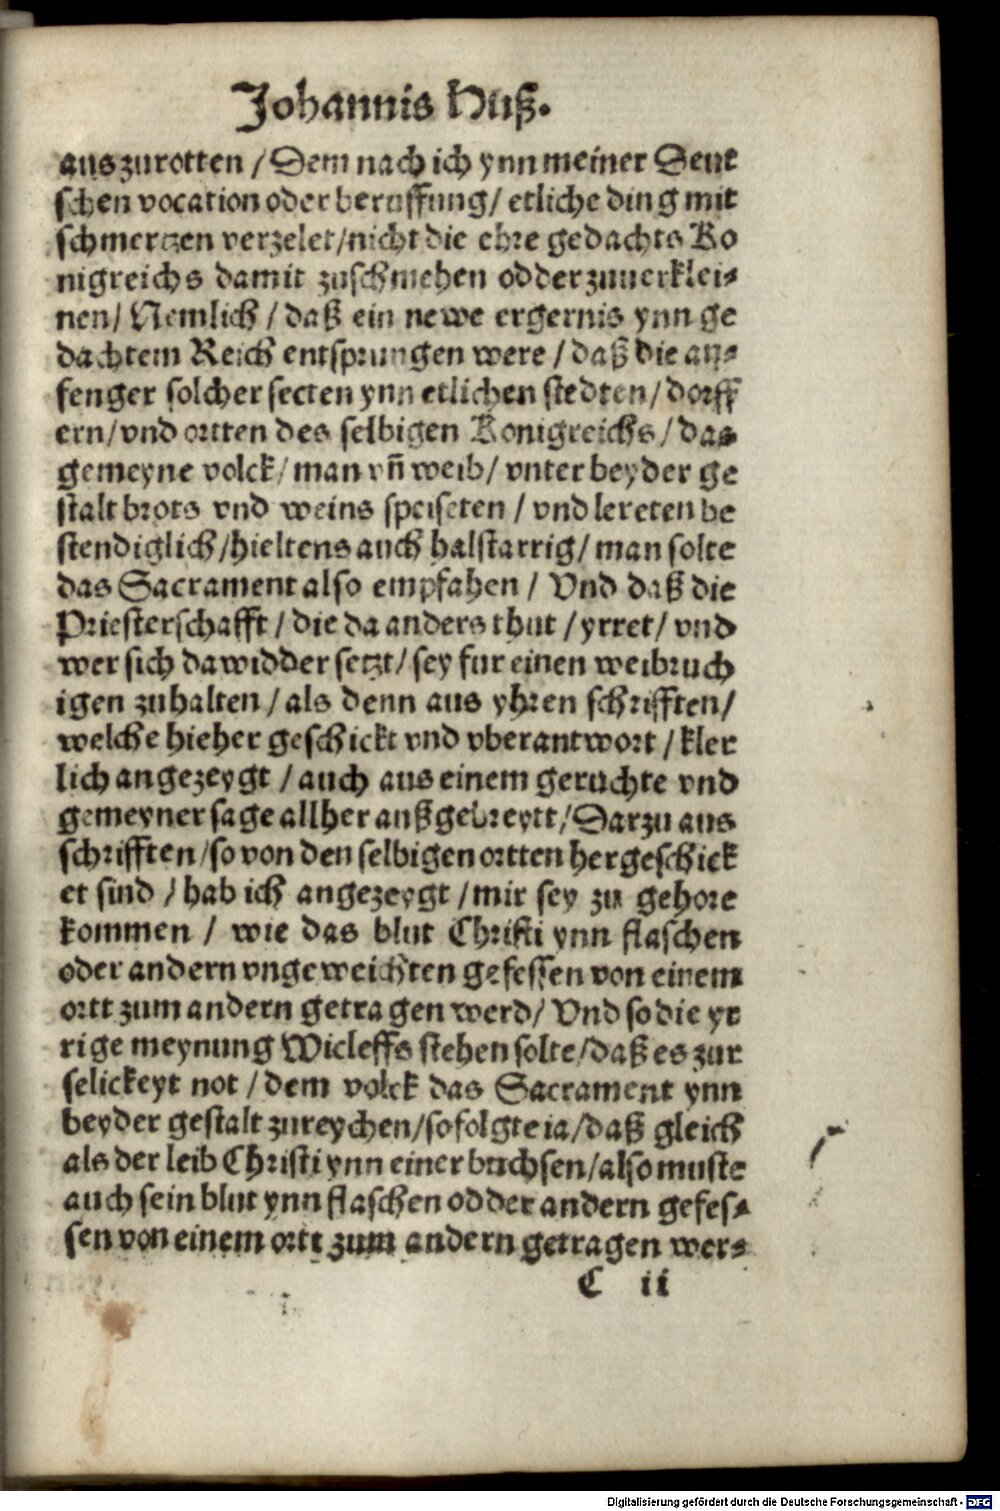 Johannis Huß.
aus zurotten / Dem nach ich ynn meiner Deut
schen vocation oder beruffung / etliche ding mit
schmertzen verzelet / nicht die ehre gedachts Ko
nigreichs damit zuschmehen odder zuuerklei-
nen / Nemlich / daß ein newe ergernis ynn ge
dachtem Reich entsprungen were / daß die an-
fenger solcher secten ynn etlichen stedten / dorff
ern / vnd ortten des selbigen Konigreichs / das
gemeyne volck / man vñ weib / vnter beyder ge
stalt brots vnd weins speiseten / vnd lereten be
stendiglich / hieltens auch halstarrig / man solte
das Sacrament also empfahen / Vnd daß die
Priesterschafft / die da anders thut / yrret / vnd
wer sich dawidder setzt / sey fur einen weibruch
igen zuhalten / als denn aus yhren schrifften /
welche hieher geschickt vnd vberantwort / kler
lich angezeygt / auch aus einem geruchte vnd
gemeyner sage allher außgebreytt / Darzu aus
schrifften / so von den selbigen ortten hergeschick
et sind / hab ich angezeygt / mir sey zu gehore
kommen / wie das blut Christi ynn flaschen
oder andern vngeweichten gefessen von einem
ortt zum andern getragen werd / Vnd so die yr
rige meynung Wicleffs stehen solte / daß es zur
selickeyt not / dem volck das Sacrament ynn
beyder gestalt zureychen / so folgte ia / daß gleich
als der leib Christi ynn einer buchsen / also muste
auch sein blut ynn flaschen odder andern gefes-
sen von einem ortt zum andern getragen wer-
C ii
Digitalisierung gefördert durch die Deutsche Forschungsgemeinschaft - DFG